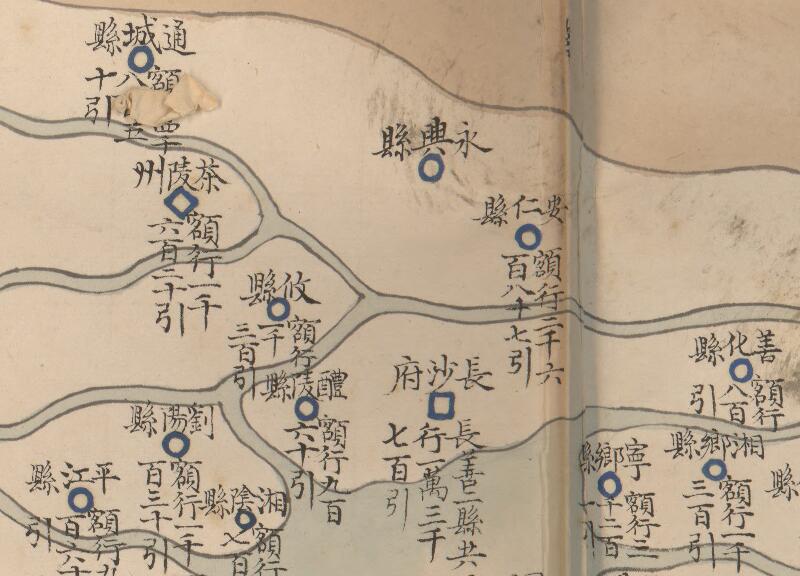 通城縣
額
八
五
十引
永興縣
茶陵州
額行一千
六百二十引
安仁縣
額行二千六
百八十七引
攸縣
額行一千
三百引
善化縣
額行
八百
引
醴陵縣
額行九百
六十引
長沙府
長善二縣共
行一萬三千
七百引
劉陽縣
額行一千
百三十引
湘鄉縣
額行一千
三百引
寧鄉縣
額行三
千二百
引
平江縣
額行九
百六十
引
湘陰縣
額行
七百
縣